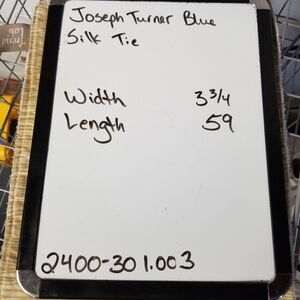 Joseph Turner Blue
Silk Tie
Width 3 3/4
Length 59
2400-301.003
Trend
Lab